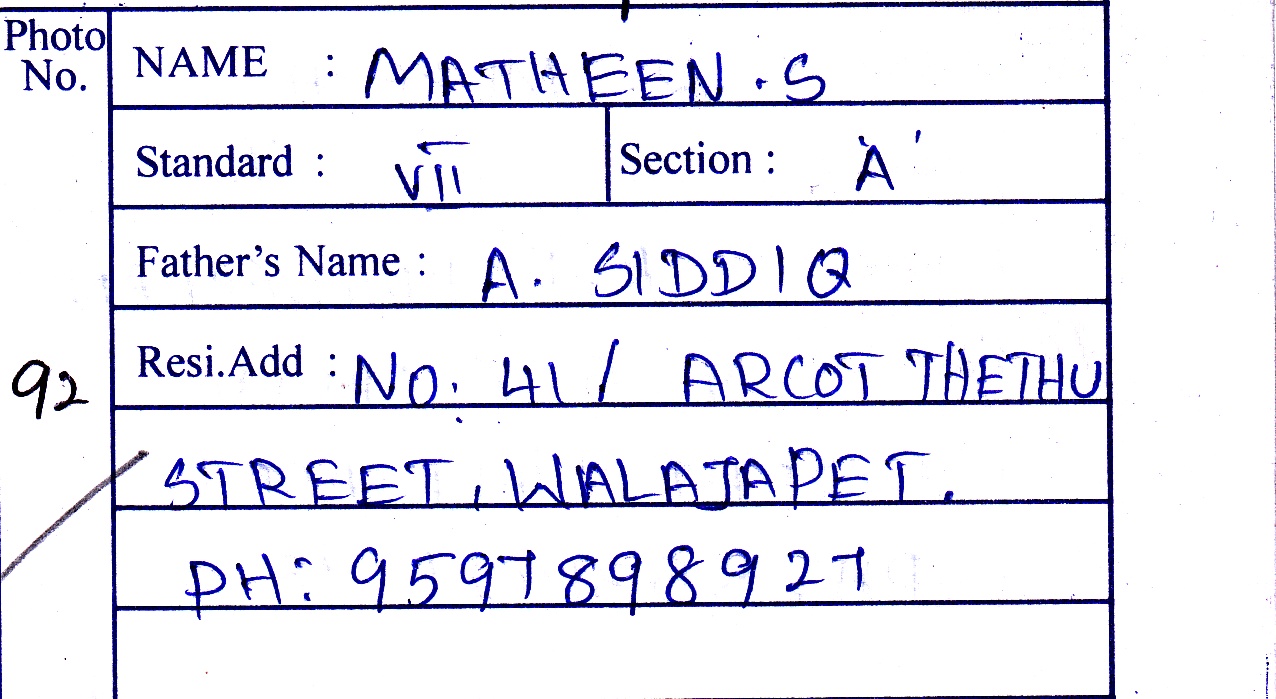 Photo No.
NAME : MATHEEN . S
Standard : VII Section : 'A'
Father's Name : A. SIDDIQ
92
Resi.Add : NO. 41/ ARCOT THETHU
STREET, WALAJAPET.
PH: 9597898927